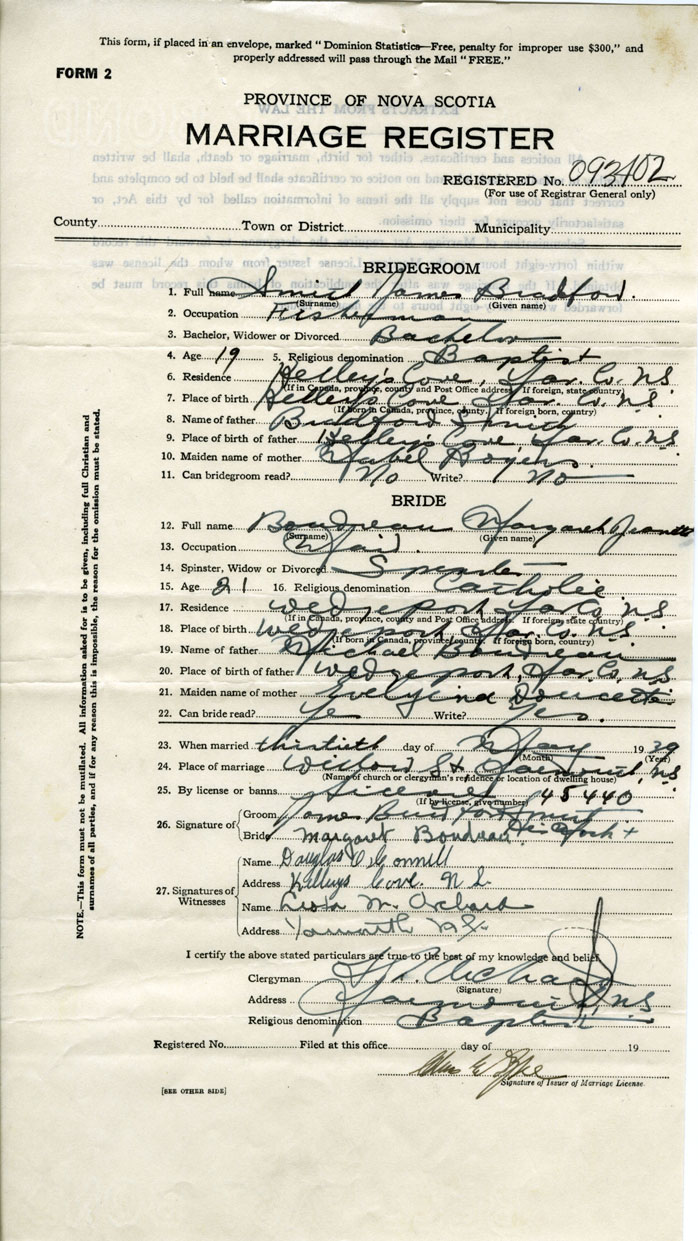 This form, if placed in an envelope, marked "Dominion Statistics—Free, penalty for improper use $300," and
properly addressed will pass through the Mail "FREE."
FORM 2
PROVINCE OF NOVA SCOTIA
MARRIAGE REGISTER
REGISTERED No. 093402
(For use of Registrar General only)
County Town or District Municipality
BRIDEGROOM
1. Full name Smith James Bradford.
(Surname) (Given name)
2. Occupation Fisherman
3. Bachelor, Widower or Divorced Bachelor
4. Age 19 5. Religious denomination Baptist
6. Residence Kelley's Cove, Yar. Co. N.S.
(If in Canada, province, county and Post Office address. If foreign, state country)
7. Place of birth Kelley's Cove Yar. Co. N.S.
(If born in Canada, province, county. If foreign born, country)
8. Name of father Bradford Smith
9. Place of birth of father Kelley's Cove Yar. Co. N.S.
10. Maiden name of mother Mabel Rogers.
11. Can bridegroom read? No Write? No
BRIDE
12. Full name Boudreau Margaret Jeanette
(Surname) (Given name)
13. Occupation Maid.
14. Spinster, Widow or Divorced Spinster
15. Age 21 16. Religious denomination Catholic
17. Residence Wedgeport Yar Co. N.S
(If in Canada, province, county and Post Office address. If foreign, state country)
18. Place of birth Wedgeport Yar. Co. N.S.
(If born in Canada, province, county. If foreign born, country)
19. Name of father Michael Boudreau
20. Place of birth of father Wedgeport, Yar Co, N.S
21. Maiden name of mother Doucette
22. Can bride read? Yes Write? Yes.
23. When married thirtieth day of May 1939
(Month) (Year)
24. Place of marriage Willow St Yarmouth, N.S
(Name of church or clergyman's residence or location of dwelling house)
25. By license or banns License 45440
(If by license, give number)
26. Signature of
Groom James Bradford Smith
his mark +
Bride Margaret Boudreau
27. Signatures of Witnesses
Name Douglas
Address Kelleys Cove N S
Name M. Orchard
Address Yarmouth N.S.
I certify the above stated particulars are true to the best of my knowledge and belief.
Clergyman Orchard
(Signature)
Address Yarmouth N.S
Religious denomination Baptist
Registered No. Filed at this office day of 19
Signature of Issuer of Marriage License.
[SEE OTHER SIDE]
NOTE.—This form must not be mutilated. All information asked for is to be given, including full Christian and
surnames of all parties, and if for any reason this is impossible, the reason for the omission must be stated.